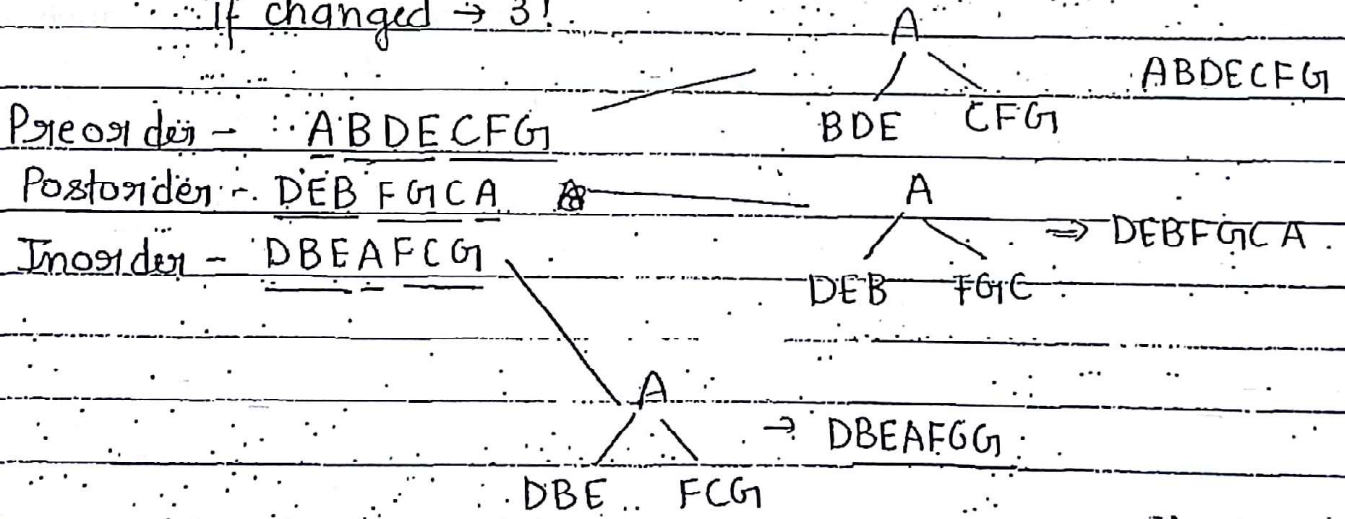 If changed → 3!.
A
BDE CFG
ABDECFG
Preorder - ABDECFG
Postorder - DEBFGCA
A
DEB FGC
⇒ DEBFGCA.
Inorder - DBEAFCG
A
DBE FCG
→ DBEAFGG